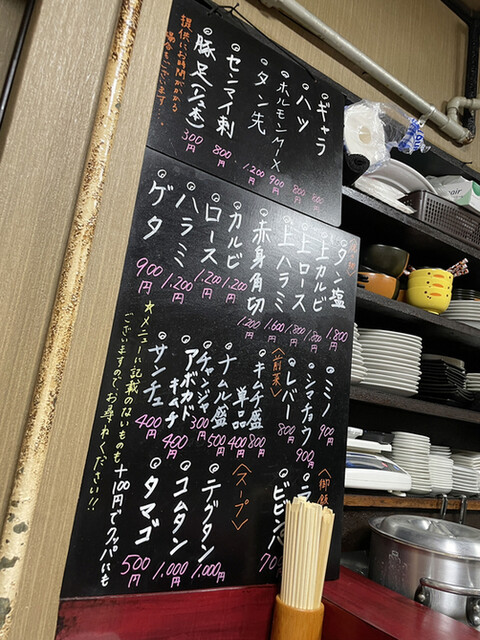 ギャラ 800円
ハツ 800円
ホルモンMIX 900円
タン先 1,200円
センマイ刺 800円
豚足(½本) 300円
提供にお時間がかかる
場合がございます
タン塩 1,800円
上カルビ 1,800円
上ロース 1,800円
上ハラミ 1,600円
赤身角切 1,200円
カルビ 1,200円
ロース 1,200円
ハラミ 1,200円
ゲタ 900円
ミノ 900円
シマチョウ 900円
レバー 800円
〈前菜〉
キムチ盛 800円
単品 400円
ナムル盛 500円
チャンジャ 300円
アボカドキムチ 400円
サンチュ 400円
〈御飯
ビビンバ
〈スープ〉
テグタン 1,000円
コムタン 1,000円
タマゴ 500円
★メニューに記載のないものも
ございますのでお尋ねください!!
+100円でクッパにも